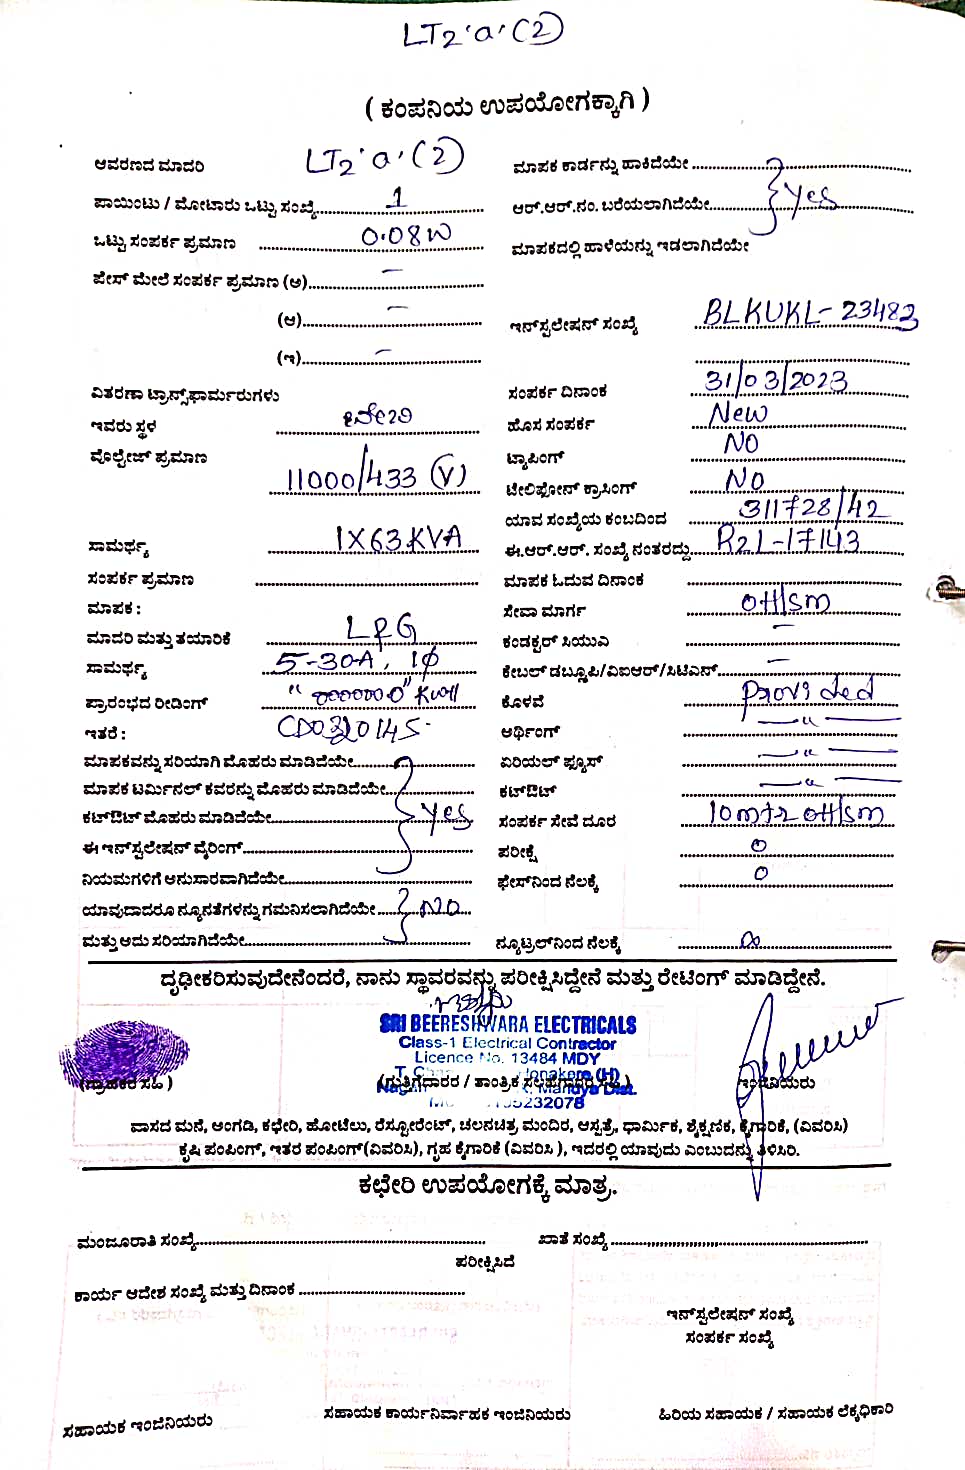 LT2'a'(2)
( ಕಂಪನಿಯ ಉಪಯೋಗಕ್ಕಾಗಿ )
ಆವರಣದ ಮಾದರಿ LT2'a'(2)
ಮಾಪಕ ಕಾರ್ಡನ್ನು ಹಾಕಿದೆಯೇ
ಪಾಯಿಂಟು / ಮೋಟಾರು ಒಟ್ಟು ಸಂಖ್ಯೆ 1
ಆರ್.ಆರ್.ನಂ. ಬರೆಯಲಾಗಿದೆಯೇ Yes
ಒಟ್ಟು ಸಂಪರ್ಕ ಪ್ರಮಾಣ 0.08W
ಮಾಪಕದಲ್ಲಿ ಹಾಳೆಯನ್ನು ಇಡಲಾಗಿದೆಯೇ
ಪೇಸ್ ಮೇಲೆ ಸಂಪರ್ಕ ಪ್ರಮಾಣ (ಅ) –
(ಆ) –
ಇನ್‌ಸ್ಟಲೇಷನ್ ಸಂಖ್ಯೆ BLKUKL-23483
(ಇ) –
ವಿತರಣಾ ಟ್ರಾನ್ಸ್‌ಫಾರ್ಮರುಗಳು
ಸಂಪರ್ಕ ದಿನಾಂಕ 31/03/2023
ಇವರು ಸ್ಥಳ
ಹೊಸ ಸಂಪರ್ಕ New
ವೊಲ್ಟೇಜ್ ಪ್ರಮಾಣ 11000/433 (V)
ಟ್ಯಾಪಿಂಗ್ NO
ಟೇಲಿಫೋನ್ ಕ್ರಾಸಿಂಗ್ NO
ಯಾವ ಸಂಖ್ಯೆಯ ಕಂಬದಿಂದ 311728/42
ಸಾಮರ್ಥ್ಯ 1X63KVA
ಈ.ಆರ್.ಆರ್. ಸಂಖ್ಯೆ ನಂತರದ್ದು R2L-17143
ಸಂಪರ್ಕ ಪ್ರಮಾಣ
ಮಾಪಕ ಓದುವ ದಿನಾಂಕ
ಮಾಪಕ :
ಸೇವಾ ಮಾರ್ಗ OH/SM
ಮಾದರಿ ಮತ್ತು ತಯಾರಿಕೆ L&G
ಕಂಡಕ್ಟರ್ ಸಿಯುವಿ –
ಸಾಮರ್ಥ್ಯ 5-30A, 1φ
ಕೇಬಲ್ ಡಬ್ಲ್ಯೂಪಿ/ವಿಐಆರ್/ಸಿಟಿಎಸ್ –
ಪ್ರಾರಂಭದ ರೀಡಿಂಗ್ "000000.0" KWH
ಕೊಳವೆ Provided
ಇತರೆ :
ಆರ್ಥಿಂಗ್ —"—
ಮಾಪಕವನ್ನು ಸರಿಯಾಗಿ ಮೊಹರು ಮಾಡಿದೆಯೇ
ಏರಿಯಲ್ ಫ್ಯೂಸ್ —"—
ಮಾಪಕ ಟರ್ಮಿನಲ್ ಕವರನ್ನು ಮೊಹರು ಮಾಡಿದೆಯೇ
ಕಟ್‌ಔಟ್ —"—
ಕಟ್‌ಔಟ್ ಮೊಹರು ಮಾಡಿದೆಯೇ Yes
ಸಂಪರ್ಕ ಸೇವೆ ದೂರ 10m+2 OH/SM
ಈ ಇನ್‌ಸ್ಟಲೇಷನ್ ವೈರಿಂಗ್
ಪರೀಕ್ಷೆ 0
ನಿಯಮಗಳಿಗೆ ಅನುಸಾರವಾಗಿದೆಯೇ
ಫೇಸ್‌ನಿಂದ ನೆಲಕ್ಕೆ 0
ಯಾವುದಾದರೂ ನ್ಯೂನತೆಗಳನ್ನು ಗಮನಿಸಲಾಗಿದೆಯೇ NO
ಮತ್ತು ಅದು ಸರಿಯಾಗಿದೆಯೇ
ನ್ಯೂಟ್ರಲ್‌ನಿಂದ ನೆಲಕ್ಕೆ ∞
ದೃಢೀಕರಿಸುವುದೇನೆಂದರೆ, ನಾನು ಸ್ಥಾವರವನ್ನು ಪರೀಕ್ಷಿಸಿದ್ದೇನೆ ಮತ್ತು ರೇಟಿಂಗ್ ಮಾಡಿದ್ದೇನೆ.
SRI BEERESHWARA ELECTRICALS
Class-1 Electrical Contractor
Licence No. 13484 MDY
(ಗ್ರಾಹಕರ ಸಹಿ )
(ಗುತ್ತಿಗೆದಾರರ / ತಾಂತ್ರಿಕ ಸಲಹೆಗಾರರ ಸಹಿ)
ಇಂಜಿನಿಯರು
ವಾಸದ ಮನೆ, ಅಂಗಡಿ, ಕಛೇರಿ, ಹೋಟೆಲು, ರೆಸ್ಟೋರೆಂಟ್, ಚಲನಚಿತ್ರ ಮಂದಿರ, ಆಸ್ಪತ್ರೆ, ಧಾರ್ಮಿಕ, ಶೈಕ್ಷಣಿಕ, ಕೈಗಾರಿಕೆ, (ವಿವರಿಸಿ)
ಕೃಷಿ ಪಂಪಿಂಗ್, ಇತರ ಪಂಪಿಂಗ್(ವಿವರಿಸಿ), ಗೃಹ ಕೈಗಾರಿಕೆ (ವಿವರಿಸಿ ), ಇದರಲ್ಲಿ ಯಾವುದು ಎಂಬುದನ್ನು ತಿಳಿಸಿರಿ.
ಕಛೇರಿ ಉಪಯೋಗಕ್ಕೆ ಮಾತ್ರ.
ಮಂಜೂರಾತಿ ಸಂಖ್ಯೆ
ಖಾತೆ ಸಂಖ್ಯೆ
ಪರೀಕ್ಷಿಸಿದೆ
ಕಾರ್ಯ ಆದೇಶ ಸಂಖ್ಯೆ ಮತ್ತು ದಿನಾಂಕ
ಇನ್‌ಸ್ಟಲೇಷನ್ ಸಂಖ್ಯೆ
ಸಂಪರ್ಕ ಸಂಖ್ಯೆ
ಸಹಾಯಕ ಇಂಜಿನಿಯರು
ಸಹಾಯಕ ಕಾರ್ಯನಿರ್ವಾಹಕ ಇಂಜಿನಿಯರು
ಹಿರಿಯ ಸಹಾಯಕ / ಸಹಾಯಕ ಲೆಕ್ಕಧಿಕಾರಿ